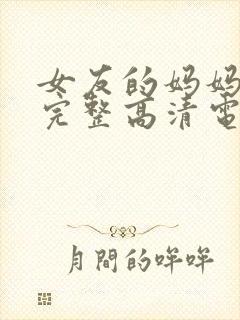 女友的妈妈
完整高清電
月間的哞哞